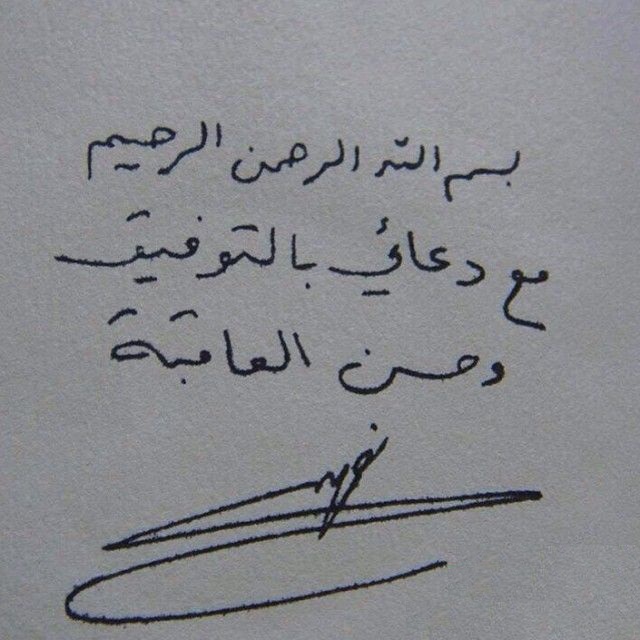 بسم الله الرحمن الرحيم
مع دعائي بالتوفيق
وحسن العاقبة